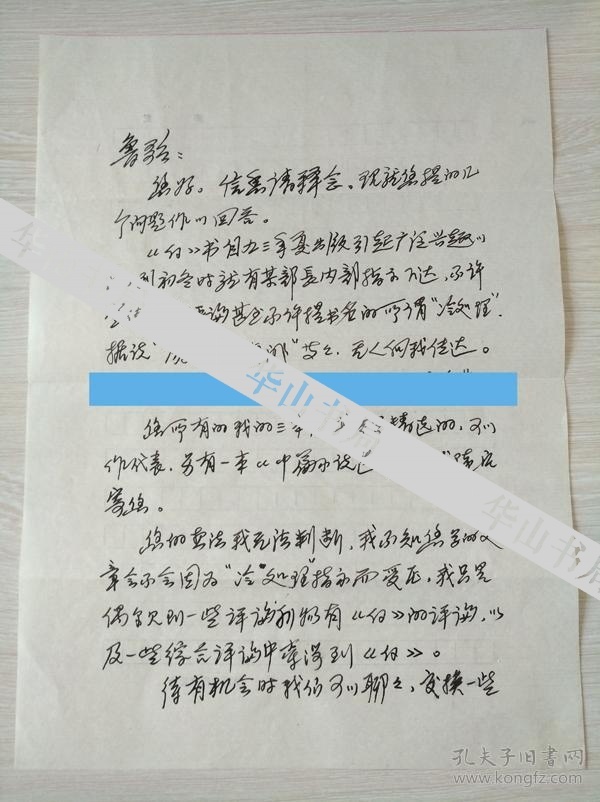 鲁歌：
您好。信悉请释念。现就您提的几
个问题作以回答。
《白》书自九三年夏出版引起广泛兴趣以
到初冬时就有某部长内部指示下达，不许
评论甚至不许提书名的所谓“冷处理”．
据说“ ”等等．无人向我传达。
您所有的我的三本， 精选的，可以
作代表，另有一本《中篇小说 随后
寄您。
您的卖法我无法判断，我不知您写的文
章会不会因为“冷处理”指示而受压，我只是
偶尔见到一些评论刊物有《白》的评论，以
及一些综合评论中牵涉到《白》。
待有机会时我们可以聊聊，交换一些
华山书店
华山书
华山书
华山书店
孔夫子旧书网
www.kongfz.com